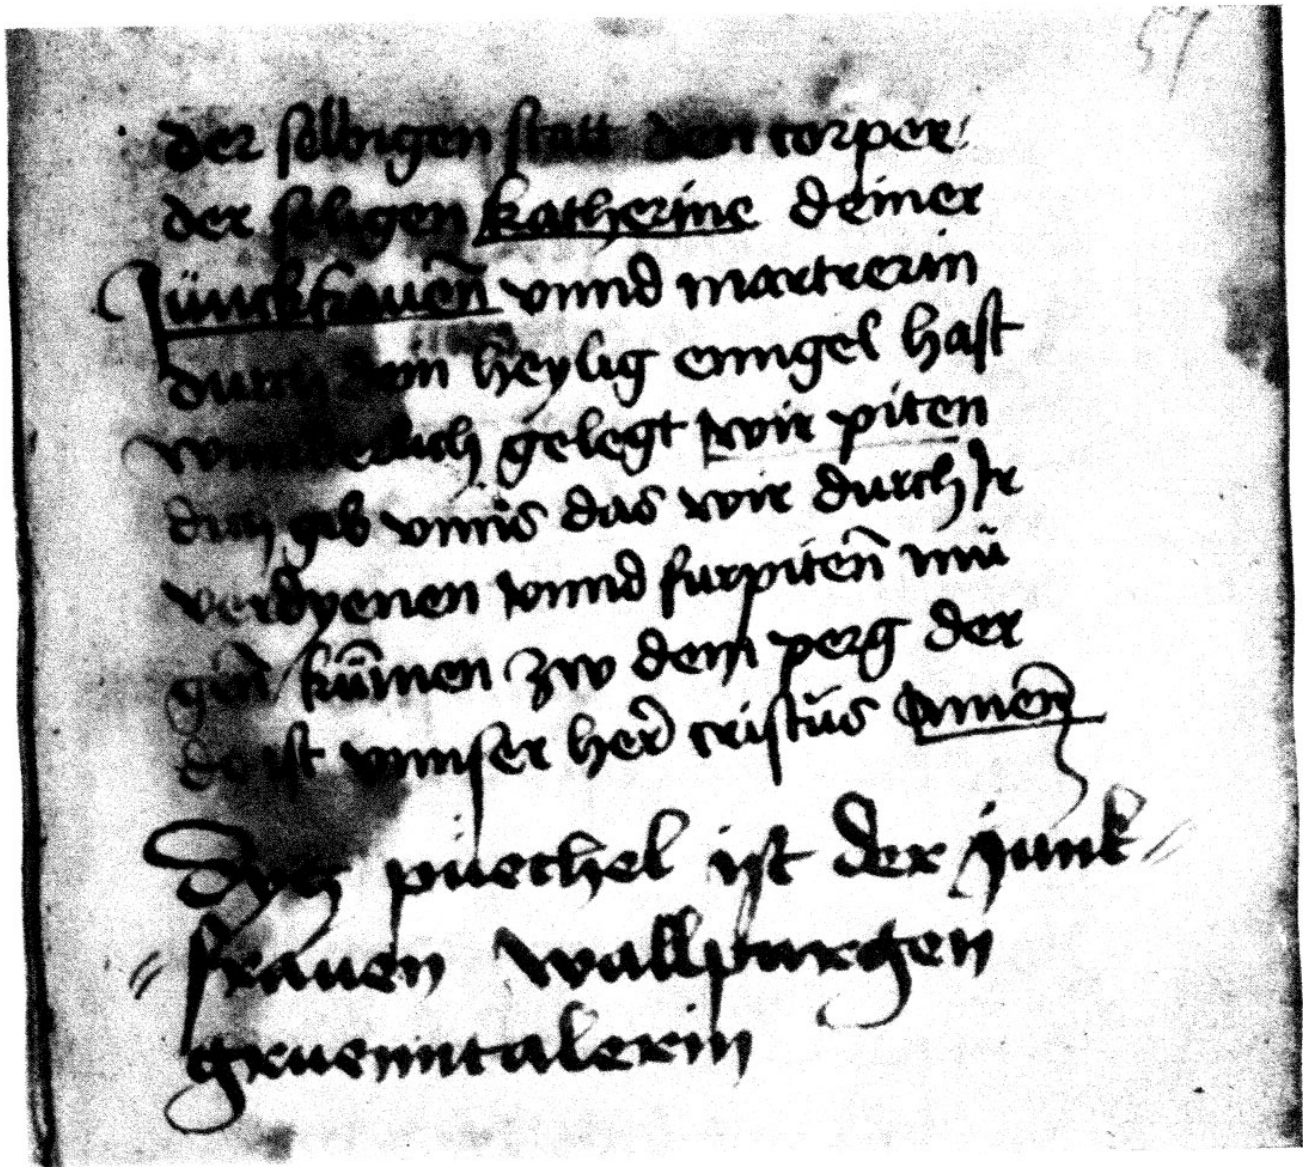 57
der selbigen statt den corper
der seligen katherine deiner
Jünckfrauen̄ vnnd martrerin
durch dein heylig enngel hast
wunderlich gelegt wir piten
dich gib vnns das wir durch Ir
verdyenen vnnd furpiten̄ mü
gen̄ kūmen zw dem perg der
do ist vnnser her̄ cristus Amen̄
Dys püechel ist der junk //
// frauen wallpurgen
gruenntalerin